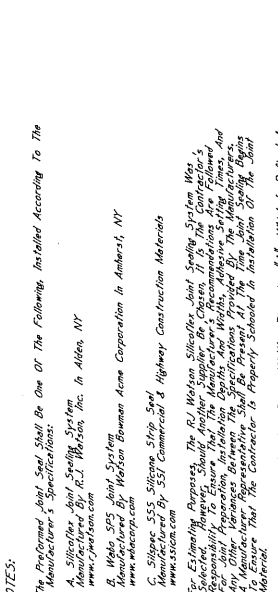 OTES:
he Preformed Joint Seal Shall Be One Of The Following, Installed According To The
Manufacturer's Specifications:
A. Silicoflex Joint Sealing System
Manufactured By R.J. Watson, Inc. In Alden, NY
www.rjwatson.com
B. Wabo SPS Joint System
Manufactured By Watson Bowman Acme Corporation In Amherst, NY
www.wbacorp.com
C. Silspec SSS Silicone Strip Seal
Manufactured By SSI Commercial & Highway Construction Materials
www.ssicm.com
or Estimating Purposes, The RJ Watson Silicoflex Joint Sealing System Was
Selected. However, Should Another Supplier Be Chosen, It Is The Contractor's
Responsibility To Ensure That The Manufacturer's Recommendations Are Followed
For Joint Preparation, Installation Depths And Widths, Adhesive Setting Times, And
Any Other Variances Between The Specifications Provided By The Manufacturers.
A Manufacturer Representative Shall Be Present At The Time Joint Sealing Begins
To Ensure That The Contractor Is Properly Schooled In Installation Of The Joint
Material.